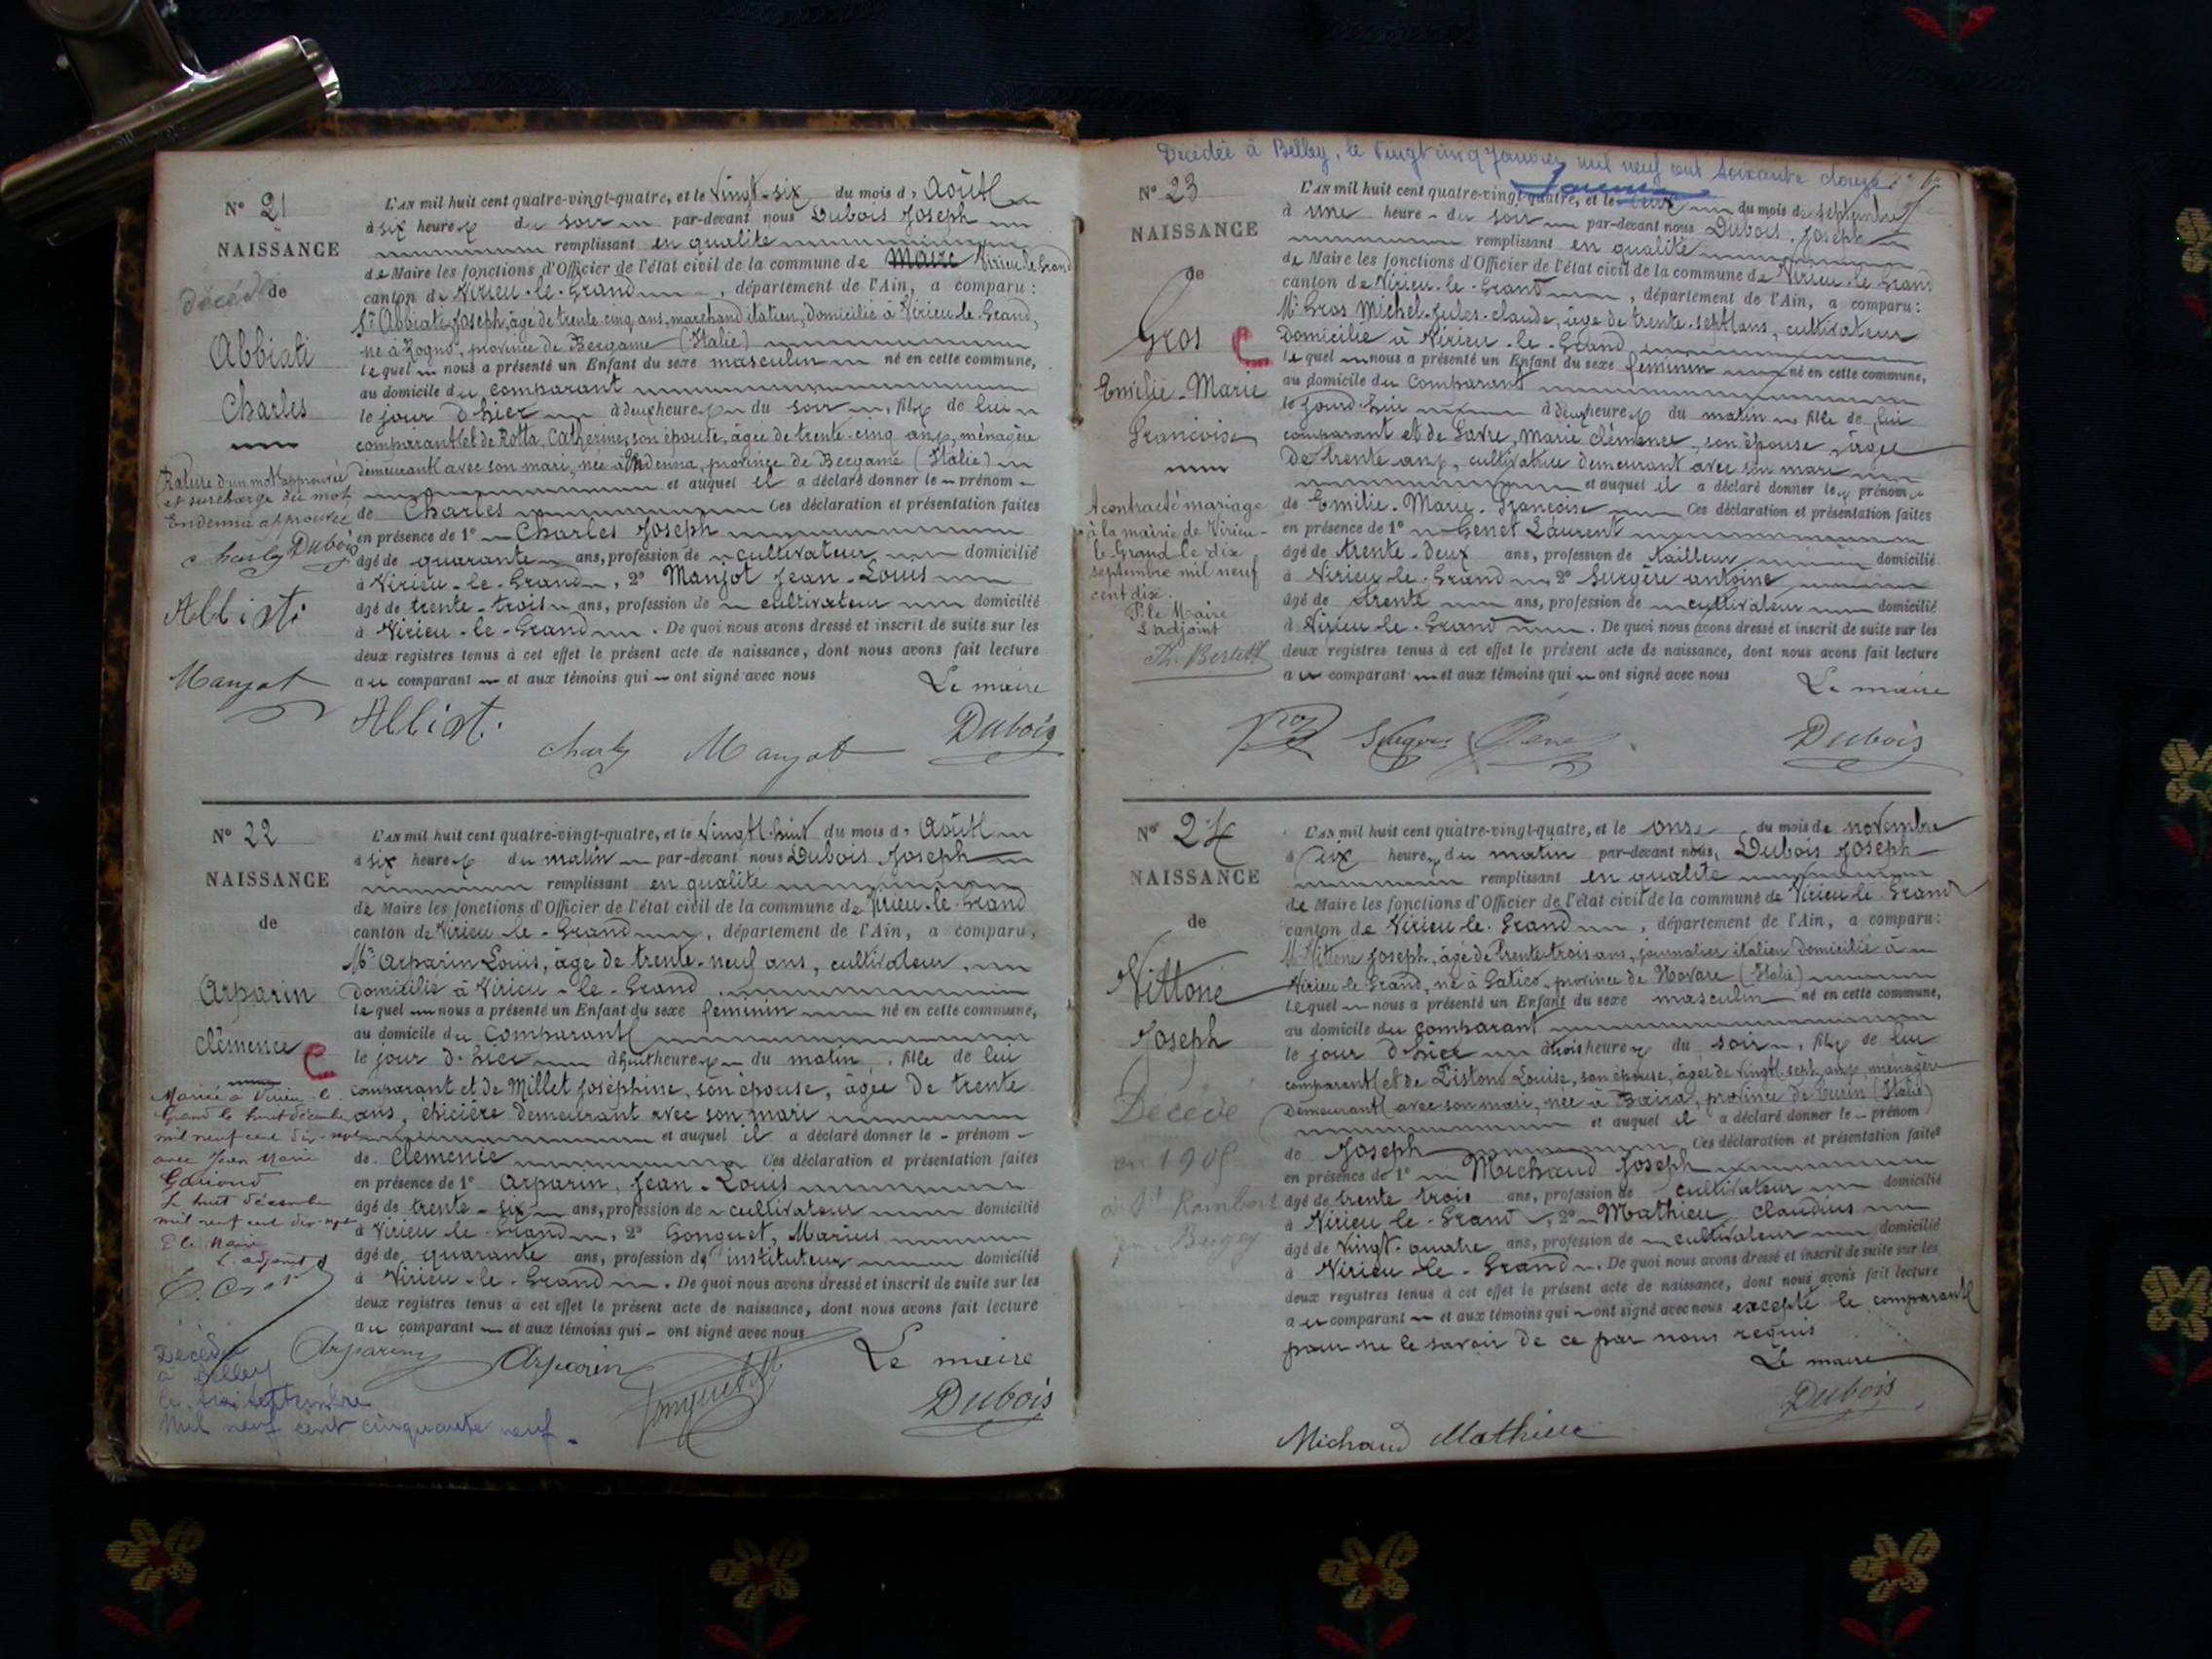 N° 21
NAISSANCE
de
décédé
Abbiati
Charles
Rature d'un mot approuvée
et surcharge du mot
Endenna approuvée
Charly Dubois
Abbiati
Manjot
L'AN mil huit cent quatre-vingt-quatre, et le Vingt-six du mois d' Août
à six heures du soir par-devant nous Dubois Joseph
remplissant en qualité
de Maire les fonctions d'Officier de l'état civil de la commune de Maire Virieu-le-Grand
canton de Virieu-le-Grand, département de l'Ain, a comparu:
Sr Abbiati Joseph, âgé de trente-cinq ans, marchand italien, domicilié à Virieu-le-Grand,
né à Rogno, province de Bergame (Italie)
lequel nous a présenté un Enfant du sexe masculin né en cette commune,
au domicile du comparant
le jour d'hier à deux heures du soir, fils de lui
comparant et de Rotta, Catherine, son épouse, âgée de trente-cinq ans, ménagère
demeurant avec son mari, née à Endenna, province de Bergame (Italie)
et auquel il a déclaré donner le prénom
de Charles Ces déclaration et présentation faites
en présence de 1° Charles Joseph
âgé de quarante ans, profession de cultivateur domicilié
à Virieu-le-Grand, 2° Manjot Jean-Louis
âgé de trente-trois ans, profession de cultivateur domicilié
à Virieu-le-Grand. De quoi nous avons dressé et inscrit de suite sur les
deux registres tenus à cet effet le présent acte de naissance, dont nous avons fait lecture
au comparant et aux témoins qui ont signé avec nous
Le maire
Abbiati Charly Manjot Dubois
N° 22
NAISSANCE
de
Arparin
Clémence
Mariée à Virieu-le-
Grand le huit décembre
mil neuf cent dix-sept
avec Jean Marie
Le huit décembre
mil neuf cent dix-sept
P. le Maire
L'adjoint
Décédée
à Belley
le trois septembre
Mil neuf cent cinquante neuf.
L'AN mil huit cent quatre-vingt-quatre, et le Vingt-huit du mois d' Août
à six heures du matin par-devant nous Dubois Joseph
remplissant en qualité
de Maire les fonctions d'Officier de l'état civil de la commune de Virieu-le-Grand
canton de Virieu-le-Grand, département de l'Ain, a comparu,
Mr Arparin Louis, âgé de trente-neuf ans, cultivateur,
domicilié à Virieu-le-Grand
lequel nous a présenté un Enfant du sexe féminin né en cette commune,
au domicile du comparant
le jour d'hier à huit heures du matin, fille de lui
comparant et de Millet Joséphine, son épouse, âgée de trente
ans, épicière demeurant avec son mari
et auquel il a déclaré donner le prénom
de Clémence Ces déclaration et présentation faites
en présence de 1° Arparin, Jean-Louis
âgé de trente-six ans, profession de cultivateur domicilié
à Virieu-le-Grand, 2° Gonguet, Marius
âgé de quarante ans, profession d' instituteur domicilié
à Virieu-le-Grand. De quoi nous avons dressé et inscrit de suite sur les
deux registres tenus à cet effet le présent acte de naissance, dont nous avons fait lecture
au comparant et aux témoins qui ont signé avec nous
Le maire
Arparin Arparin Gonguet Dubois
Décédée à Belley, le vingt cinq Janvier mil neuf cent soixante douze
N° 23
NAISSANCE
de
Gros
Emilie-Marie
Françoise
A contracté mariage
à la mairie de Virieu-
le-Grand le dix
septembre mil neuf
cent dix.
P. le Maire
L'adjoint
L'AN mil huit cent quatre-vingt-quatre, et le deux du mois de septembre
à une heure du soir par-devant nous Dubois, Joseph
remplissant en qualité
de Maire les fonctions d'Officier de l'état civil de la commune de Virieu-le-Grand
canton de Virieu-le-Grand, département de l'Ain, a comparu:
Mr Gros Michel-Jules-Claude, âgé de trente-sept ans, cultivateur
domicilié à Virieu-le-Grand
lequel nous a présenté un Enfant du sexe féminin né en cette commune,
au domicile du comparant
le jour d'hier à deux heures du matin fille de lui
comparant et de Favre, Marie Clémence, son épouse, âgée
de trente ans, cultivatrice demeurant avec son mari
et auquel il a déclaré donner les prénoms
de Emilie-Marie-Françoise Ces déclaration et présentation faites
en présence de 1° Genet Laurent
âgé de trente-deux ans, profession de tailleur domicilié
à Virieu-le-Grand 2° Surgère Antoine
âgé de trente ans, profession de cultivateur domicilié
à Virieu-le-Grand. De quoi nous avons dressé et inscrit de suite sur les
deux registres tenus à cet effet le présent acte de naissance, dont nous avons fait lecture
au comparant et aux témoins qui ont signé avec nous
Le maire
Dubois
N° 24
NAISSANCE
de
Vittone
Joseph
Décédé
en 1905
à St Rambert
en Bugey
L'AN mil huit cent quatre-vingt-quatre, et le onze du mois de novembre
à dix heures du matin par-devant nous, Dubois Joseph
remplissant en qualité
de Maire les fonctions d'Officier de l'état civil de la commune de Virieu-le-Grand
canton de Virieu-le-Grand, département de l'Ain, a comparu:
Mr Vittone Joseph, âgé de trente-trois ans, journalier italien domicilié à
Virieu-le-Grand, né à Gatico, province de Novare (Italie)
lequel nous a présenté un Enfant du sexe masculin né en cette commune,
au domicile du comparant
le jour d'hier à trois heures du soir, fils de lui
comparant et de Pistono Louise, son épouse, âgée de vingt-sept ans, ménagère
demeurant avec son mari, née à province de Turin (Italie)
et auquel il a déclaré donner le prénom
de Joseph Ces déclaration et présentation faites
en présence de 1° Michaud Joseph
âgé de trente trois ans, profession de cultivateur domicilié
à Virieu-le-Grand, 2° Mathieu, Claudius
âgé de vingt-quatre ans, profession de cultivateur domicilié
à Virieu-le-Grand. De quoi nous avons dressé et inscrit de suite sur les
deux registres tenus à cet effet le présent acte de naissance, dont nous avons fait lecture
au comparant et aux témoins qui ont signé avec nous excepté le comparant
pour ne le savoir de ce par nous requis
Le maire
Dubois
Michaud Mathieu